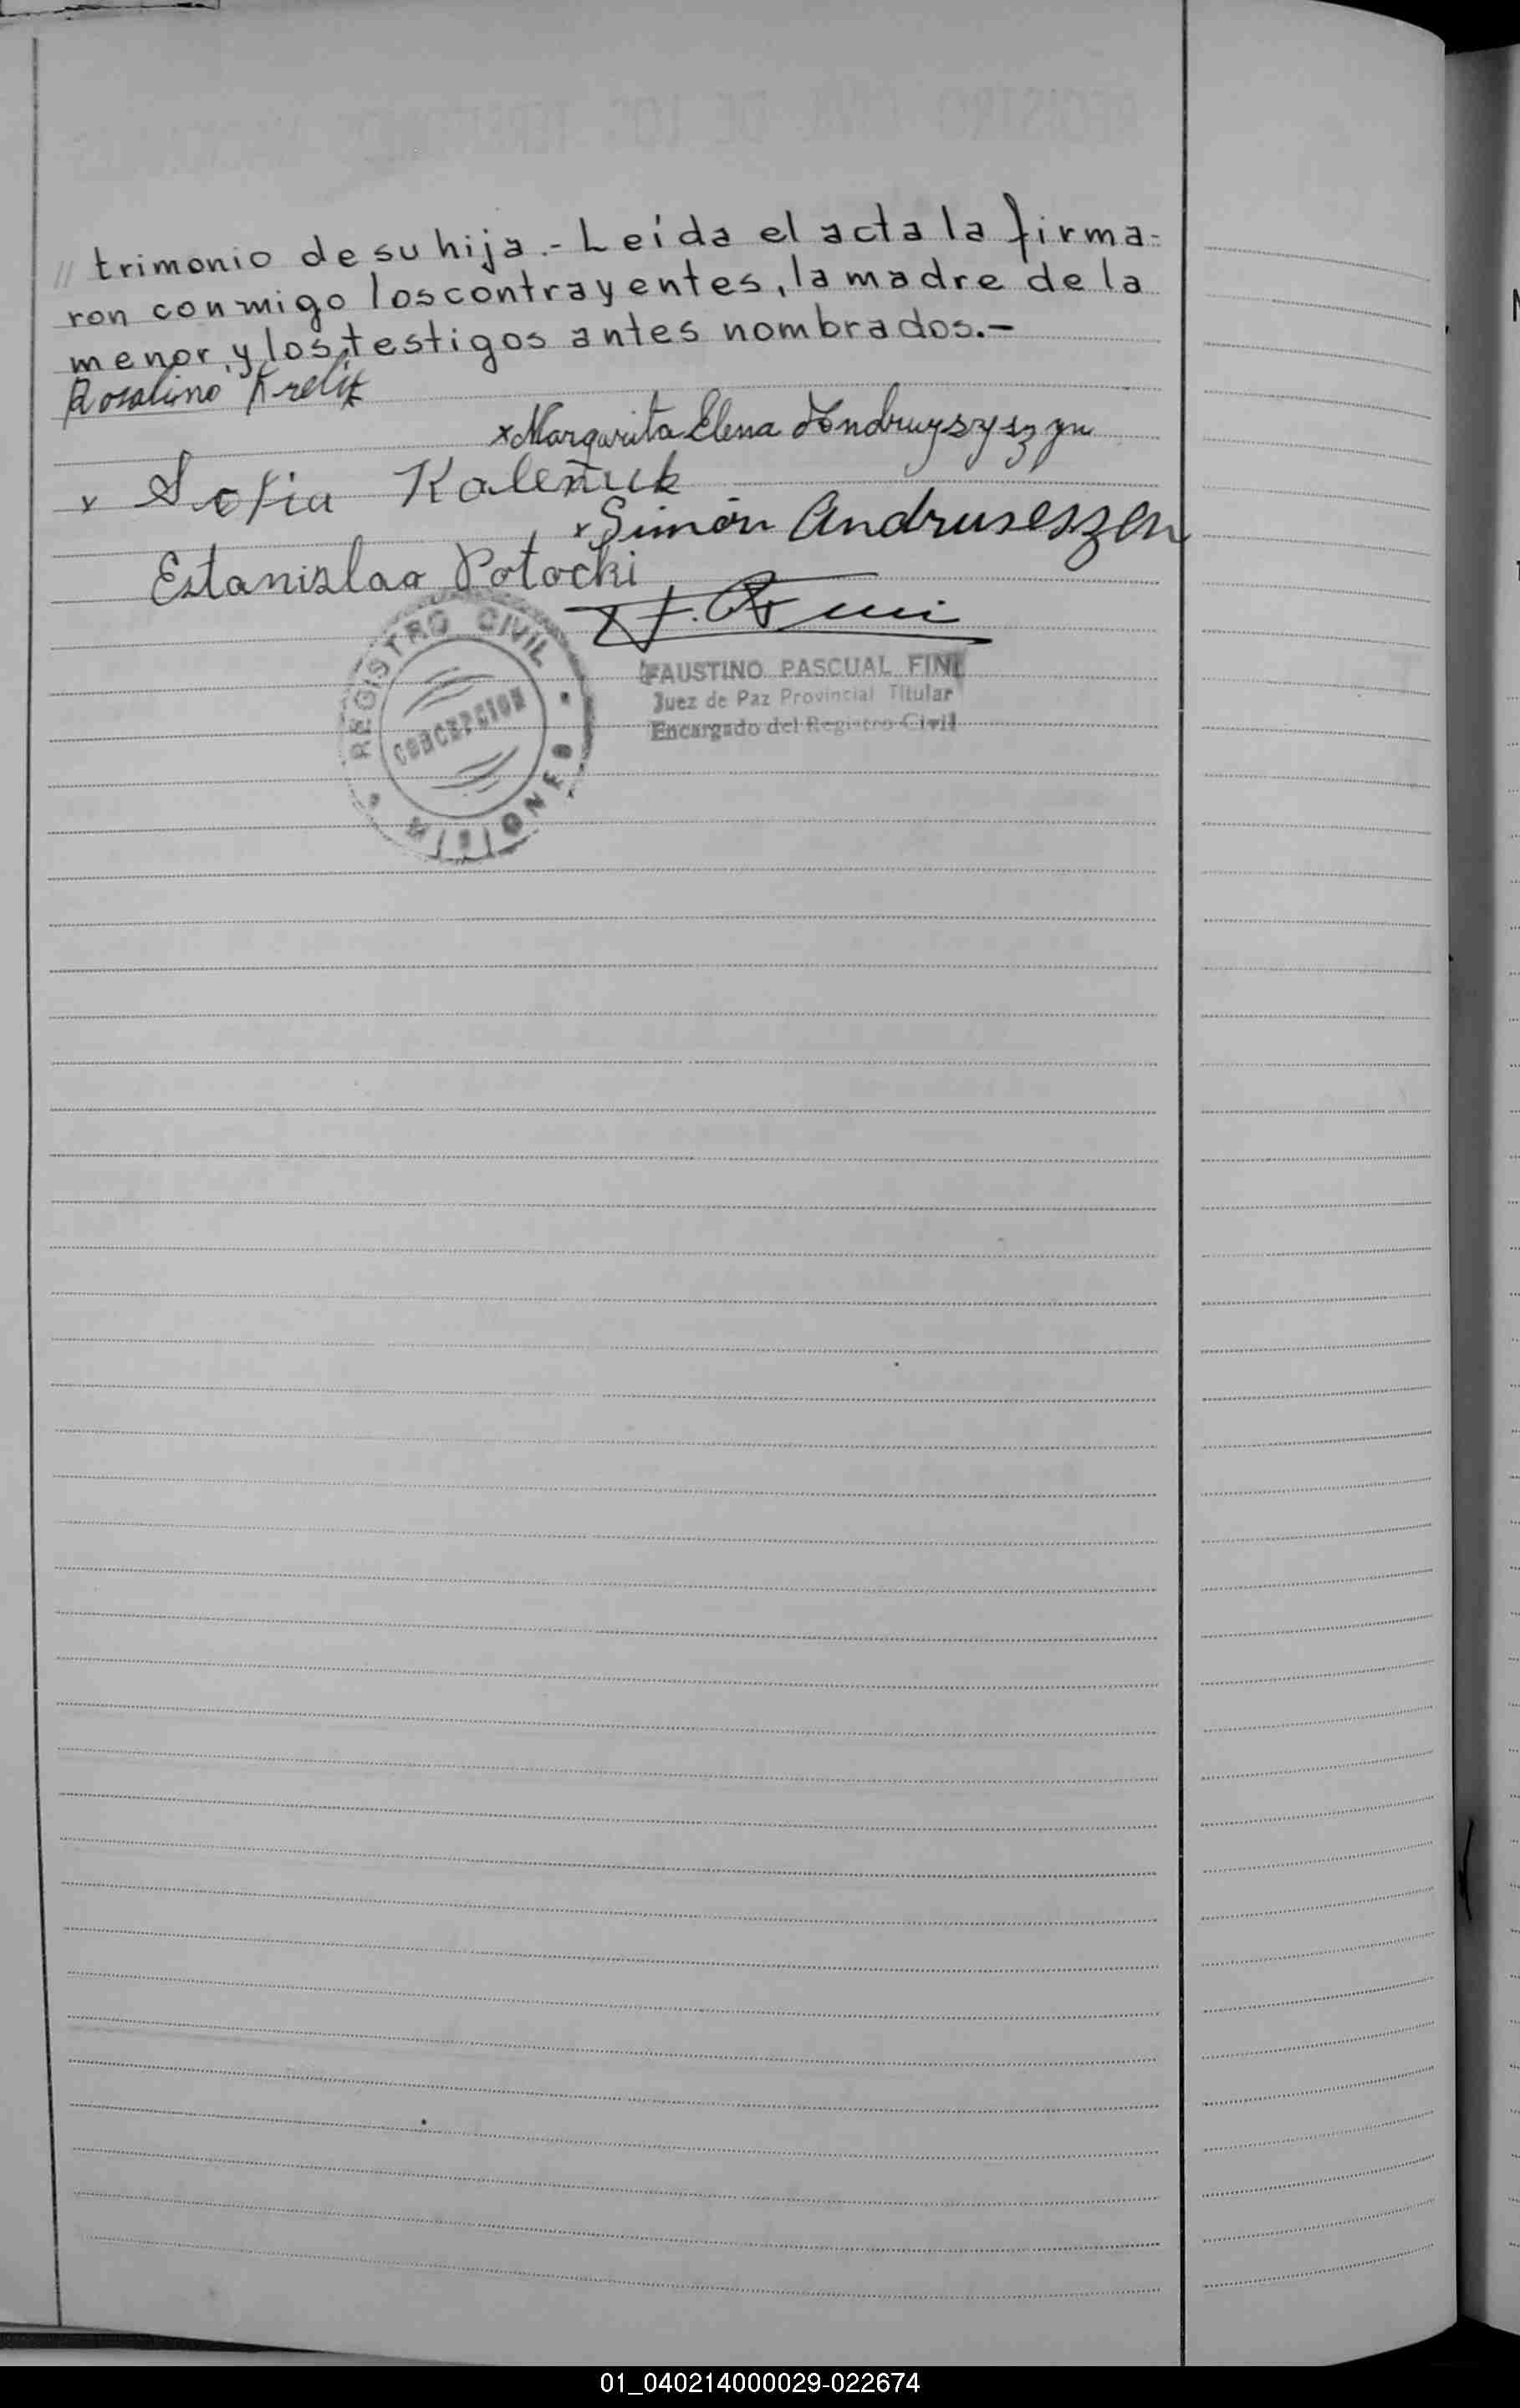 // trimonio de su hija.- Leída el acta la firma-
ron conmigo los contrayentes, la madre de la
menor y los testigos antes nombrados.-
Rosalino
x Margarita Elena
x Sofia Kaleñuk
x Simón Andruseszen
Estanislao Potocki
REGISTRO CIVIL
CONCEPCION
MISIONES
FAUSTINO PASCUAL FINI
Juez de Paz Provincial Titular
Encargado del Registro Civil
01_040214000029-022674